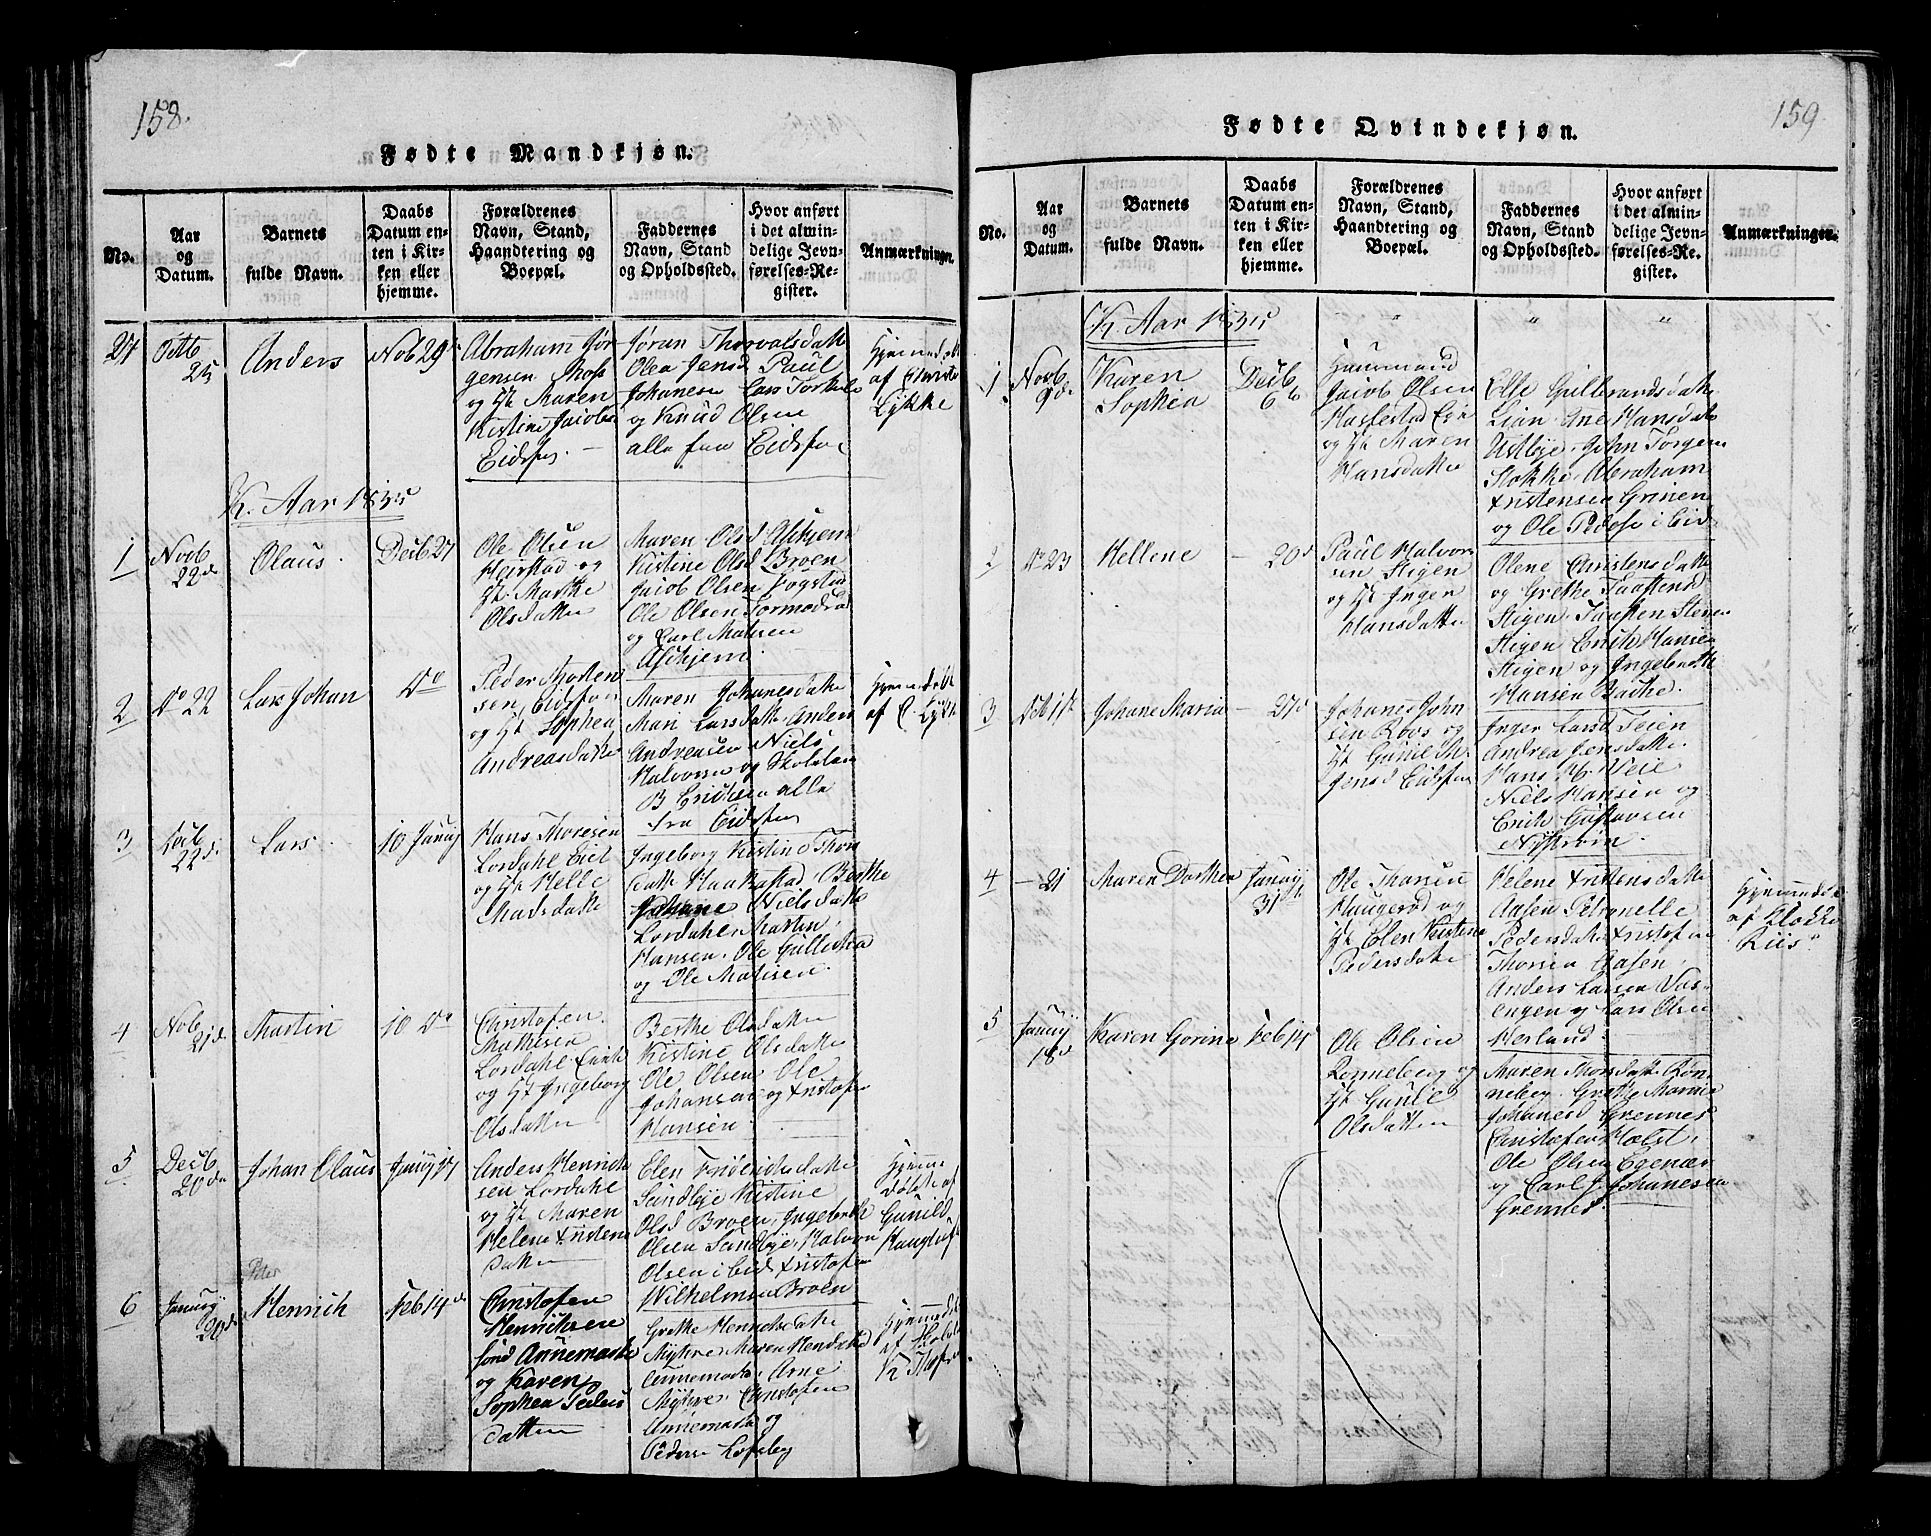 158.
Fødte Mandkjøn.
No.
Aar
og
Datum.
Barnets
fulde Navn.
Daabs
Datum en-
ten i Kir-
ken eller
hjemme.
Forældrenes
Navn, Stand,
Haandtering og
Boepæl.
Faddernes
Navn, Stand
og Opholdssted.
Hvor anført
i det almin-
delige Jevn-
førelses-Re-
gister.
Anmærkninger.
27
Octb
25
Anders
Nob 29
Abraham Jør
gensen Moss
og H. Maren
Kistine Jacobs
Eidsfos.
Jøran Thorvalsdatt
Olea Jensd Paul
Johanesen Lars Torkels
og Knud Olsen
alle fra Eidsfos
Hjemmedøbt
af
Lykke
K. Aar 1835
1
Novb
22d
Olaus
Decb 27
Ole Olsen
Heirstad og
H. Marthe
Olsdatter
Maren Olsd Askjem
Kistine Olsd Broen
Jacob Olsen Bogstad
Ole Olsen Tormodrød
og Carl Matisen
Askjem
2
Do 22
Lars Johan
Do
Peder Morten
sen, Eidsfos
og H. Sophea
Andreasdatter
Maren Johanesdatte
Mari Larsdatte Anders
Andreasen Niels
Halvorsen og Skolelær
B Ericksen alle
fra Eidsfos
Hjemmedøbt
af
3
Decb
22d
Lars
10 Januy
Hans Thoresen
Lordahl Eiet
og H. Helle
Madsdatte
Ingeborg Kistine Thors
datte Haakestad Berthe
Johane Nielsdatte
Lordahl Martin
Hansen, Ole Gullichsen
og Ole Matisen.
4
Nob
21d
Martin
10 Do
Christofen
Mathisen
Lordahl
og H. Ingeborg
Olsdatter
Berthe Olsdatter
Kistine Olsdatte
Ole Olsen, Ole
Johansen og Kristofer
Hansen
5
Decb
20de
Johan Olaus
Januy 17
Anders Henrick
sen Lordahl
og H. Maren
Helene Kristens
datter
Elen Friderichsdatte
Sandbye Kistine
Olsd Broen, Ingebrett
Olsen Sandbye Halvor
Olsen ibid Kristofer
Wilhelmsen Broen
Hjemme
døbt af
Gunild
6
Januy
29d
Peter
Henrich
Feb 14d
Christofen
Henrichsen
Annemarke
og Karen
Sophea Peders
datter
Grethe Henrichsdatte
Myhre Maren Hendatte
Annemarke, Arne
Myhre, Christofen
Annemarke og
Peders Lofsby
Hjemmedøbt
af
159.
Fødte Qvindekjøn.
No.
Aar
og
Datum.
Barnets
fulde Navn.
Daabs
Datum en-
ten i Kir-
ken eller
hjemme.
Forældrenes
Navn, Stand,
Haandtering og
Boepæl.
Faddernes
Navn, Stand
og Opholdssted.
Hvor anført
i det almin-
delige Jevn-
førelses-Re-
gister.
Anmærkninger.
K. Aar 1835
" " " "
1
Novb
9d
Karen
Sophea
Decb
6
Huusmand
Jacob Olsen
Hasfestad
og H. Maren
Hansdatte
Elle Gulbrandsdatte
Lian Ane Hansdatte
Østbye, John Torgersen
Stokke, Abraham
Kristensen Grinen
og Ole Peders ibid
2
Do 23
Hellene
20d
Paul Halvor
sen Stigen
og H. Inger
Hansdatte
Olene Christensdatte
og Grethe Taaftensd
Stigen, Taaften Steners
Stigen Erich Hansen
Stigen og Ingebrett
Hansen Backe.
3
Decb 11
Johane Maria
27d
Johanes John
sen Roos og
H. Gunild M.
Jensd Eidsfos
Inger Larsd Teien
Andrea Jensdatte.
Hans H. Veie
Niels Hansen og
Erich Gustavsen
Nystrøm
4
21
Maren Dorthea
Januy
31
Ole Thorsen
Haugerød og
H. Elen Kistine
Pedersdatte
Helene Kristensdatte
Aasen Petronelle
Pedersdatte Kristofer
Thorsen Aasen,
Anders Larsen Vas-
engen og Lars Olsen
Herland
Hjemmedøbt
af Klokker
Riis
5
Januy
18d
Karen Gorine
Feb 14
Ole Olsen
Rønneberg og
H. Gunild
Olsdatter
Maren Thorsdatte Røn-
neberg, Grethe Maria
Johanesd Grennes
Christofer Holst,
Ole Olsen Egenæs
og Carl J. Johanesen
Grennes